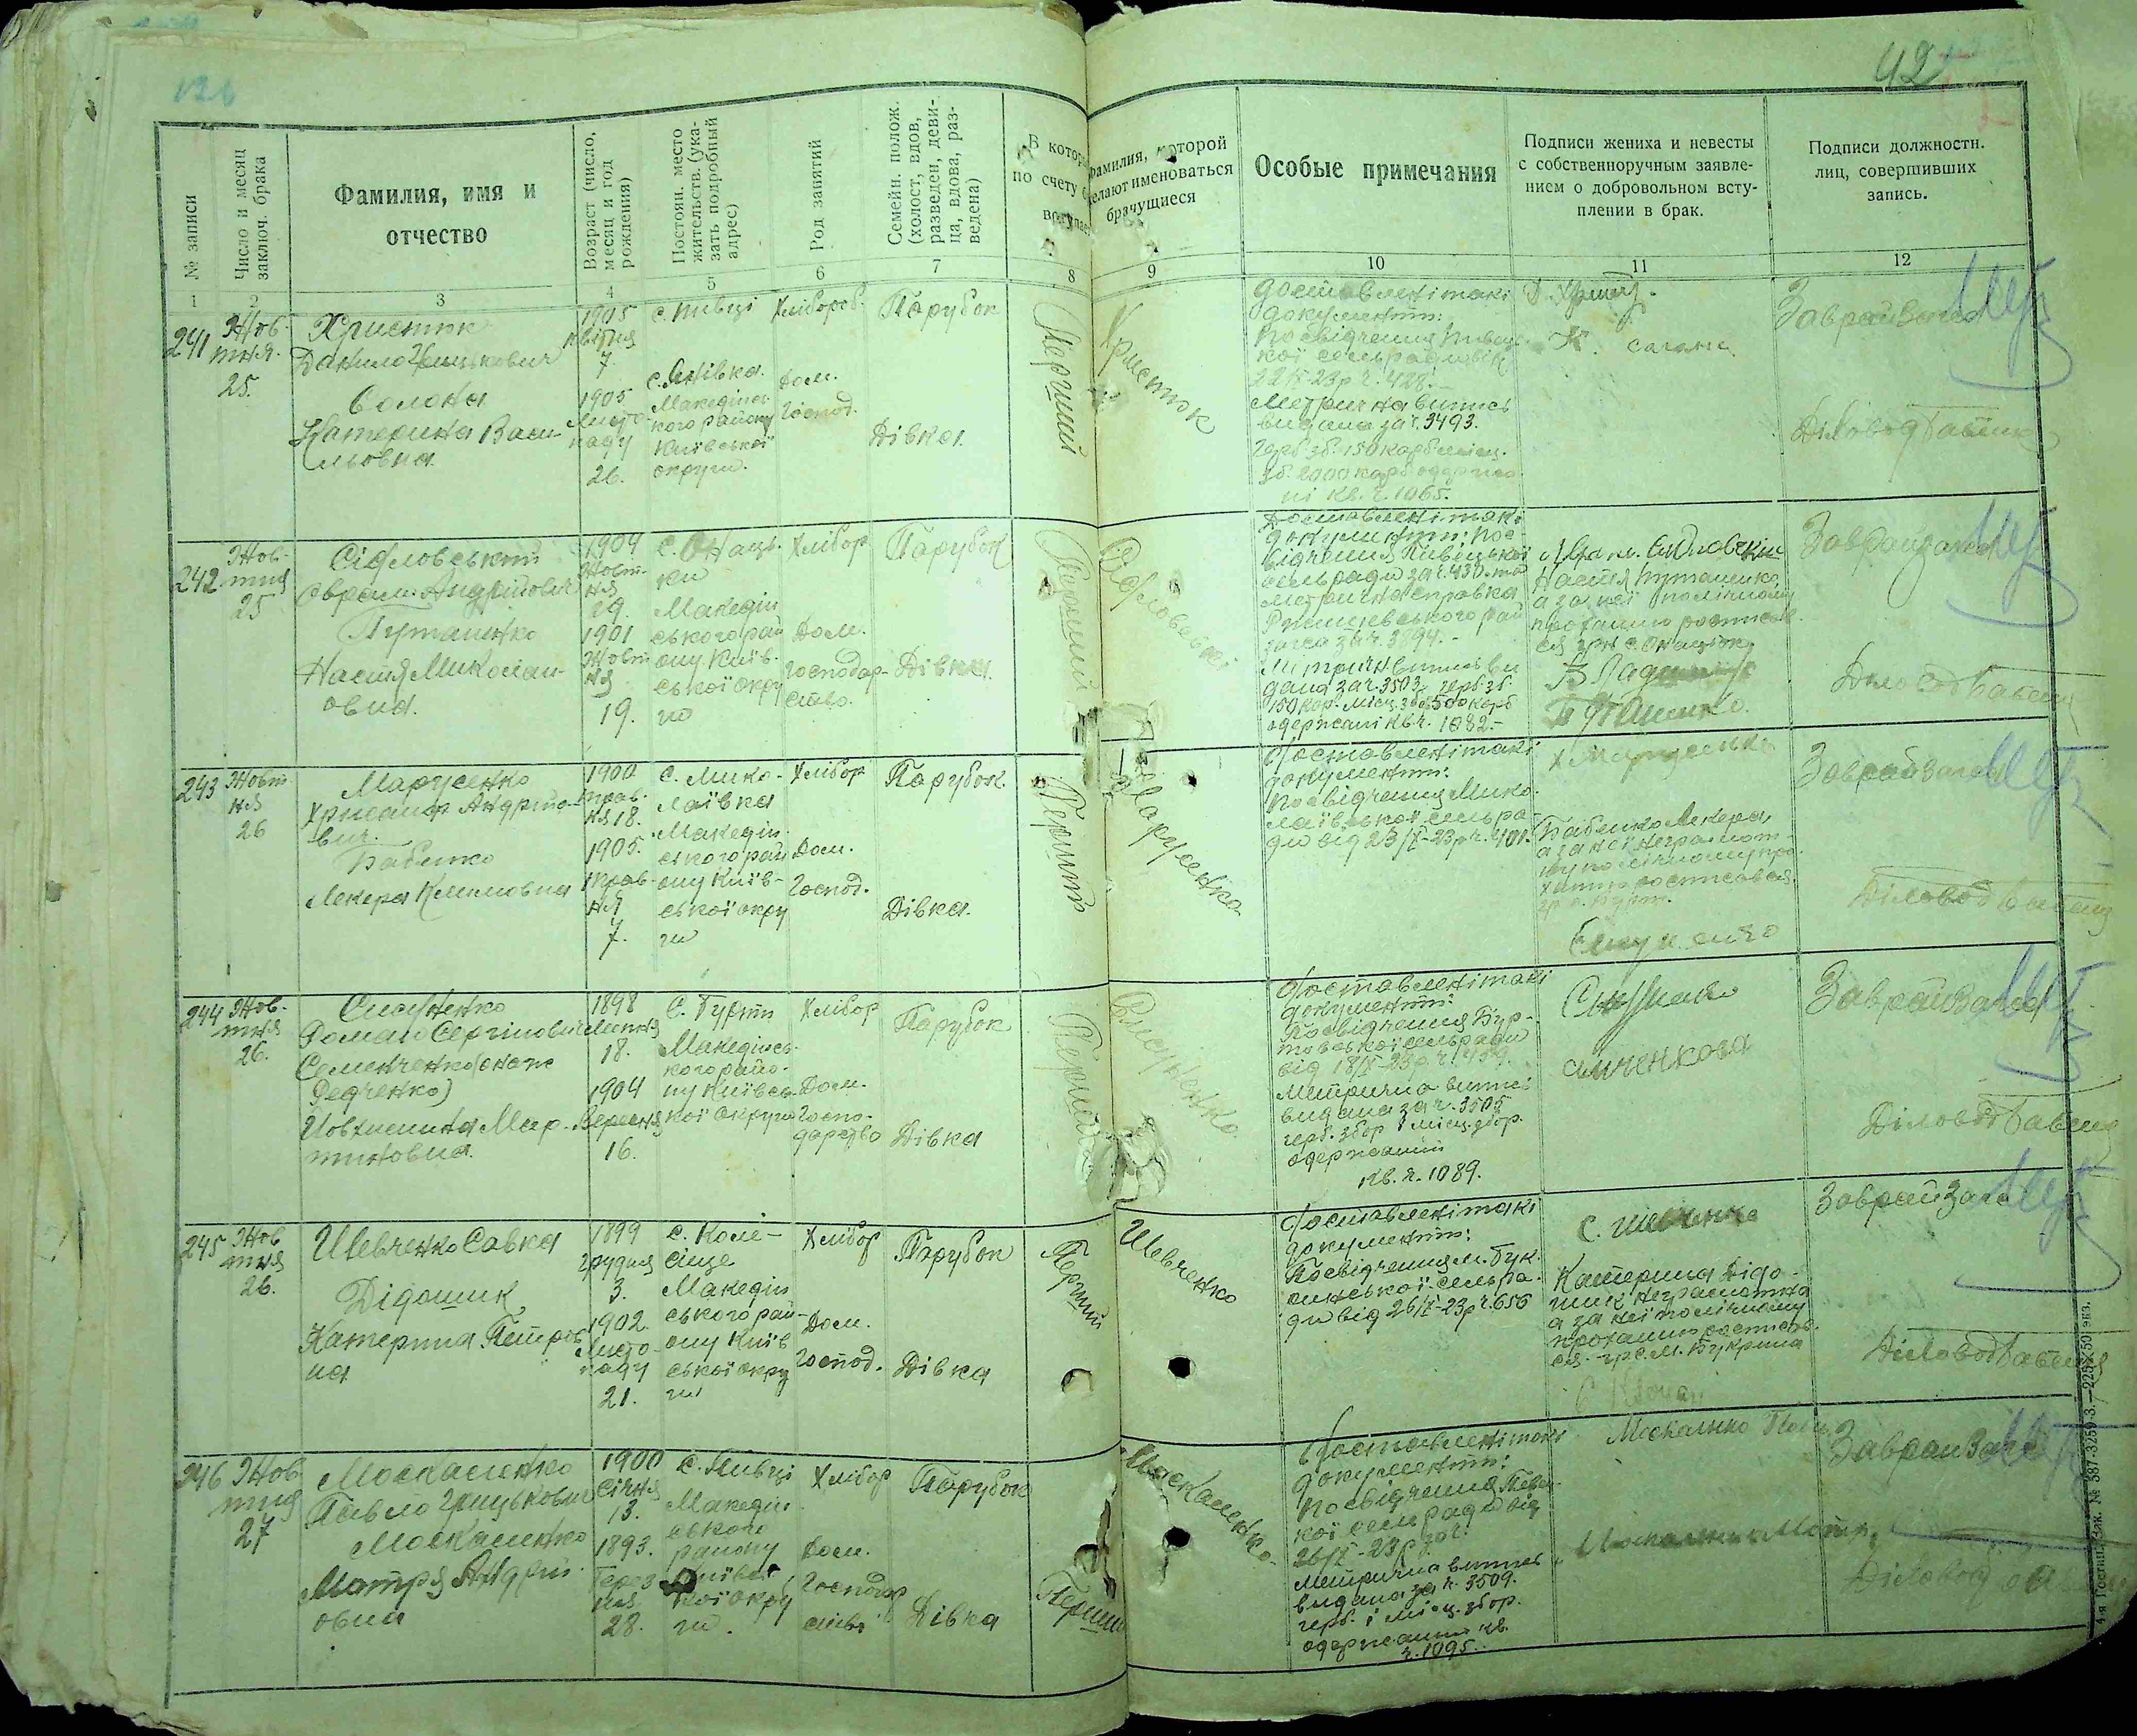 42
№ записи
Число и месяц заключ. брака
Фамилия, имя и
отчество
Возраст (число, месяц и год рождения)
Постоян. место жительств. (указать подробный адрес)
Род занятий
Семейн. полож. (холост, вдов, разведен, девица, вдова, разведена)
В котор
по счету
фамилия, которой
желают именоваться
брачущиеся
Особые примечания
Подписи жениха и невесты
с собственноручным заявле-
нием о добровольном всту-
плении в брак.
Подписи должностн.
лиц, совершивших
запись.
1 2 3 4 5 6 7 8 9 10 11 12
241 Жов-
тня
25.
Христюк
Данило Грицькович
Солона
Катерина Васи-
льовна
1905
квітня
7.
1905
Листо-
паду
26.
с. Пивці
с. Янівка
Македінсь-
кого району
Київської
округи.
Хлібороб.
Дом.
Господ.
Парубок
Дівка
Перший
Христюк
доставлені такі
документи:
Посвідчення Пивец-
кої сельради від
22/X-23р. ч. 428.
Метрична випись
видана за ч. 3493.
Герб зб. 150 карб місц.
зб. 2000 карб одержа-
ні кв. ч. 1065.
К. Солона
Заврайзагса
Діловод
242 Жов-
тня
25
Сідловський
Оврам Андрійович
Путаненко
Настя Миколаи-
овна.
1904
Жовт-
ня
29.
1901
Жовт
ня
19.
с. Онаць-
ки
Македін
ського рай
ону Київ-
ської окру
ги
Хлібор
Дом.
Господар-
ство.
Парубок
Дівка.
Перший
Сідловські
Доставлені такі
документи: Пос-
відчення Пивецької
сельради за ч. 430 та
метрична справка
Ржищевського рай
загса за ч. 3494.-
Метрична випись ви
дана за ч. 3503, герб зб.
150 кар. місц. зб. 500 карб
одержані кв. ч. 1082.-
Настя Путаненко,
а за неї по лічному
проханню росписав-
ся гр. с. Онацьки
Заврайзагса
Діловод
243 Жовт
ня
26
Марусенко
Хрисанф Андрійо-
вич.
Бабенко
Лекера Климовна
1900
трав-
ня 18.
1905.
трав-
ня
7.
с. Мико-
лаївка
Македін-
ського рай
ону Київ-
ської окру
ги
Хлібор
Дом.
Господ.
Парубок.
Дівка.
Перший
Марусенко
Доставлені такі
документи:
Посвідчення Мико-
лаївської сельра-
ди від 23/X-23р ч. 401.
Х Марусенко
Бабенко Лекера,
а за неї неграмот-
ну по лічному про-
ханню росписався
Заврайзагса
Діловод
244 Жов-
тня
26.
Слисуненко
Роман Сергійович
Семенченко (она же
Дедченко)
Йовхимина Мар-
тиновна.
1898
Липня
18.
1904
Вересня
16.
с. Бурти
Македінсь-
кого райо-
ну Київсь-
кої округи
Хлібор
Дом.
Госпо-
дарство
Парубок
Дівка
Перший
Доставлені такі
документи:
Посвідчення Бур-
товської сельради
від 18/X-23р. ч. 459.
Метрична випись
видана за ч. 3505
герб. збор і місц. збор.
одержаний
кв. ч. 1089.
Заврайзагса
Діловод
245 Жов
тня
26.
Шевченко Савка
Дідошик
Катерина Петров
на
1899
грудня
3.
1902.
Листо-
паду
21.
с. Коле-
сіще
Македін
ського рай-
ону Київ
ської окру
ги
Хлібор
Дом.
Господ.
Парубок
Дівка
Перший
Шевченко
Доставлені такі
документи:
Посвідчення М. Бук-
ринської сельра-
ди від 26/X-23р ч. 656
С. Шевченко
Катерина Дідо-
шик неграмотна
а за неї по лічному
проханню росписав-
ся гр. с. М. Букрина
Заврайзагса
Діловод
246 Жов
тня
27
Москаленко
Павло Грицькович
Москаленко
Мотря Андрій-
овна
1900
Січня
13.
1893.
Берез
ня
28.
с. Пивці
Македін-
ського
району
Київсь
кої окру
ги.
Хлібор
Дом.
Господар
ство
Парубок
Дівка
Перший
Москаленко.
Доставлені такі
документи:
Посвідчення Пивец-
кої сельради від
26/X-23р за ч.
Метрична випись
видана за ч. 3509.
герб. і місц. збор.
одержаний кв.
ч. 1095.
Заврайзагса
Діловод
4-я Гостип. Зак. № 587-3259-З.—225×50 экз.